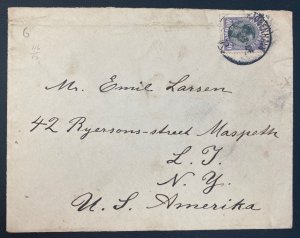 G
Mr. Emil Larsen
42 Ryersons-street Maspeth
L. I.
N. Y.
U. S. Amerika